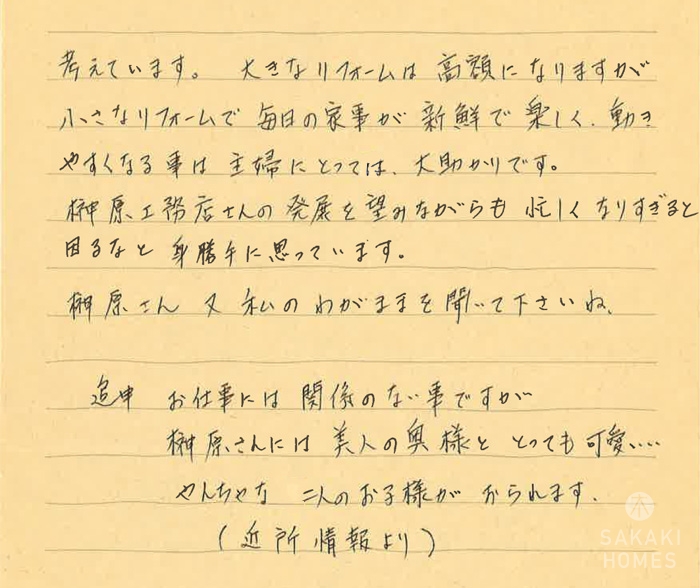 考えています。 大きなリフォームは 高額に なりますが
小さなリフォームで 毎日の家事が 新鮮で 楽しく、動き
やすくなる事は 主婦にとっては、大助かりです。
榊原工務店さんの 発展を望みながらも 忙しくなりすぎると
困るなと 身勝手に思っています。
榊原さん 又 私のわがままを聞いて下さいね、
追申 お仕事には 関係のない事ですが
榊原さんには 美人の奥様と とっても可愛い……
やんちゃな 二人のお子様が おられます。
(近所情報より)
SAKAKI
HOMES